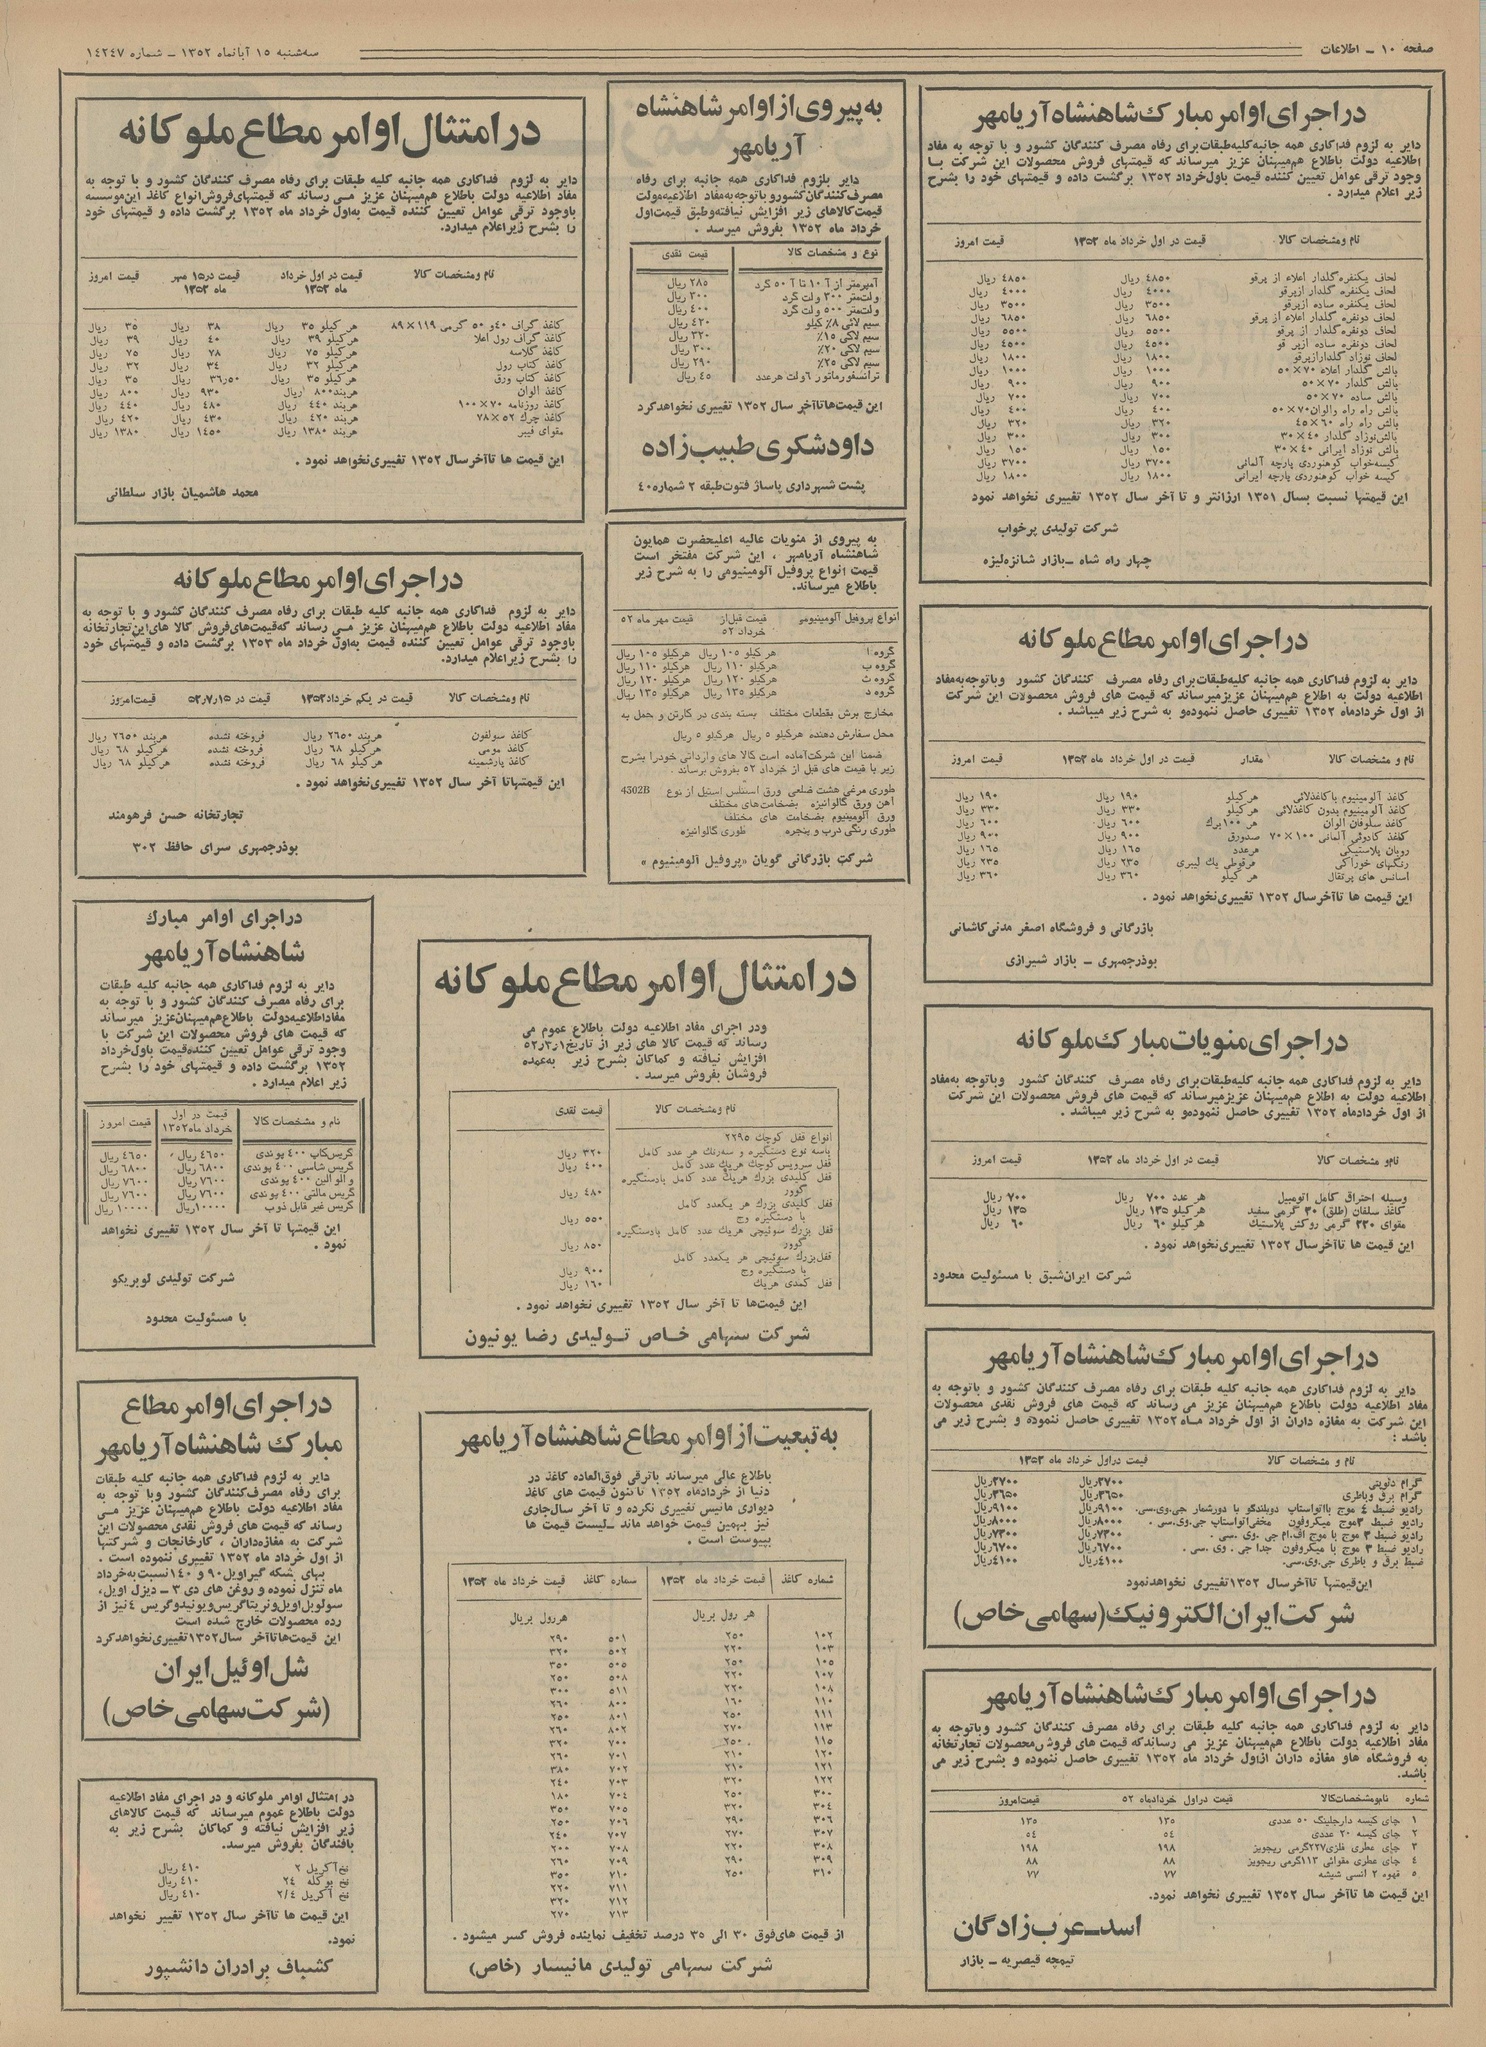 صفحه ۱۰ ـ اطلاعات
سه‌شنبه ۱۵ آبانماه ۱۳۵۲ ـ شماره ۱٤۲٤۷
در اجرای اوامر مبارک شاهنشاه آریامهر
دایر به لزوم فداکاری همه جانبه کلیه طبقات برای رفاه مصرف کنندگان کشور و با توجه به مفاد
اطلاعیه دولت باطلاع هم‌میهنان عزیز میرساند که قیمتهای فروش محصولات این شرکت بــا
وجود ترقی عوامل تعیین کننده قیمت باول خرداد ۱۳۵۲ برگشت داده و قیمتهای خود را بشرح
زیر اعلام میدارد .
نام ومشخصات کالا قیمت در اول خرداد ماه ۱۳۵۲ قیمت امروز
لحاف یکنفره گلدار اعلاء از پرقو ٤۸۵۰ ریال ٤۸۵۰ ریال
لحاف یکنفره گلدار ازپرقو ٤۰۰۰ ریال ٤۰۰۰ ریال
لحاف یکنفره ساده ازپرقو ۳۵۰۰ ریال ۳۵۰۰ ریال
لحاف دونفره گلدار اعلاء از پرقو ٦۸۵۰ ریال ٦۸۵۰ ریال
لحاف دونفره گلدار از پرقو ۵۵۰۰ ریال ۵۵۰۰ ریال
لحاف دونفره ساده ازپر قو ٤۵۰۰ ریال ٤۵۰۰ ریال
لحاف نوزاد گلدارازپرقو ۱۸۰۰ ریال ۱۸۰۰ ریال
بالش گلدار اعلاء ۷۰ × ۵۰ ۱۰۰۰ ریال ۱۰۰۰ ریال
بالش گلدار ۷۰ × ۵۰ ۹۰۰ ریال ۹۰۰ ریال
بالش ساده ۷۰ × ۵۰ ۷۰۰ ریال ۷۰۰ ریال
بالش راه راه والوان ۷۰ × ۵۰ ٤۰۰ ریال ٤۰۰ ریال
بالش راه راه ٦۰ × ٤۵ ۳۲۰ ریال ۳۲۰ ریال
بالش نوزاد گلدار ٤۰ × ۳۰ ۳۰۰ ریال ۳۰۰ ریال
بالش نوزاد ایرانی ٤۰ × ۳۰ ۱۵۰ ریال ۱۵۰ ریال
کیسه‌خواب کوهنوردی پارچه آلمانی ۳۷۰۰ ریال ۳۷۰۰ ریال
کیسه خواب کوهنوردی پارچه ایرانی ۱۸۰۰ ریال ۱۸۰۰ ریال
این قیمتها نسبت بسال ۱۳۵۱ ارزانتر و تا آخر سال ۱۳۵۲ تغییری نخواهد نمود
شرکت تولیدی پرخواب
چهار راه شاه ـ بازار شانزه‌لیزه
در اجرای اوامر مطاع ملوکانه
دایر به لزوم فداکاری همه جانبه کلیه‌طبقات‌برای رفاه مصرف کنندگان کشور وباتوجه به‌مفاد
اطلاعیه دولت به اطلاع هم‌میهنان عزیزمیرساند که قیمت های فروش محصولات این شرکت
از اول خردادماه ۱۳۵۲ تغییری حاصل ننموده‌و به شرح زیر میباشد .
نام و مشخصات کالا مقدار قیمت در اول خرداد ماه ۱۳۵۲ قیمت امروز
کاغذ آلومینیوم باکاغذلائی هرکیلو ۱۹۰ ریال ۱۹۰ ریال
کاغذ آلومینیوم بدون کاغذلائی هرکیلو ۳۳۰ ریال ۳۳۰ ریال
کاغذ سلوفان الوان هر ۱۰۰برگ ٦۰۰ ریال ٦۰۰ ریال
کاغذ کادوئی آلمانی ۱۰۰ × ۷۰ صدورق ۹۰۰ ریال ۹۰۰ ریال
روبان پلاستیکی هرعدد ۱٦۵ ریال ۱٦۵ ریال
رنگهای خوراکی هرقوطی یک لیبری ۲۳۵ ریال ۲۳۵ ریال
اسانس های پرتقال هر کیلو ۳٦۰ ریال ۳٦۰ ریال
این قیمت ها تاآخرسال ۱۳۵۲ تغییری‌نخواهد نمود .
بازرگانی و فروشگاه اصغر مدنی‌کاشانی
بوذرجمهری ـ بازار شیرازی
در اجرای منویات مبارک ملوکانه
دایر به لزوم فداکاری همه جانبه کلیه‌طبقات‌برای رفاه مصرف کنندگان کشور وباتوجه به‌مفاد
اطلاعیه دولت به اطلاع هم‌میهنان عزیزمیرساند که قیمت های فروش محصولات این شرکت
از اول خردادماه ۱۳۵۲ تغییری حاصل ننموده‌و به شرح زیر میباشد .
نام‌و مشخصات کالا قیمت در اول خرداد ماه ۱۳۵۲ قیمت امروز
وسیله احتراق کامل اتومبیل هر عدد ۷۰۰ ریال ۷۰۰ ریال
کاغذ سلفان (طلق) ۳۰ گرمی سفید هرکیلو ۱۳۵ ریال ۱۳۵ ریال
مقوای ۲۳۰ گرمی روکش پلاستیک هرکیلو ٦۰ ریال ٦۰ ریال
این قیمت ها تاآخرسال ۱۳۵۲ تغییری‌نخواهد نمود .
شرکت ایران‌شبق با مسئولیت محدود
در اجرای اوامر مبارک شاهنشاه آریامهر
دایر به لزوم فداکاری همه جانبه کلیه طبقات برای رفاه مصرف کنندگان کشور و باتوجه به
مفاد اطلاعیه دولت باطلاع هم‌میهنان عزیز می رساند که قیمت های فروش نقدی محصولات
این شرکت به مغازه داران از اول خرداد مـاه ۱۳۵۲ تغییری حاصل ننموده و بشرح زیر می
باشد :
نام و مشخصات کالا قیمت دراول خرداد ماه ۱۳۵۲
گرام دئوپتی ۲۷۰۰ریال
گرام برق وباطری ۳٦۵۰ریال
رادیو ضبط ٤ موج بااتواستاپ دوبلندگو با دورشمار جی.وی.سی. ۹۱۰۰ریال
رادیو ضبط ۳موج میکروفون مخفی‌اتواستاپ جی.وی.سی . ۸۰۰۰ریال
رادیو ضبط ۳ موج با موج اف.ام جی .وی .سی . ۷۳۰۰ریال
رادیو ضبط ۳ موج با میکروفون جدا جی . وی .سی . ٦۷۰۰ریال
ضبط برق و باطری جی.وی.سی. ٤۱۰۰ریال
این‌قیمتها تاآخرسال ۱۳۵۲تغییری نخواهدنمود
شرکت ایران الکترونیک (سهامی خاص)
در اجرای اوامر مبارک شاهنشاه آریامهر
دایر به لزوم فداکاری همه جانبه کلیه طبقات برای رفاه مصرف کنندگان کشور وباتوجه به
مفاد اطلاعیه دولت باطلاع هم‌میهنان عزیز می رساندکه قیمت های فروش‌محصولات تجارتخانه
به فروشگاه هاو مغازه داران ازاول خرداد ماه ۱۳۵۲ تغییری حاصل ننموده و بشرح زیر می
باشد.
شماره نام‌ومشخصات‌کالا قیمت دراول خردادماه ۵۲ قیمت‌امروز
۱ چای کیسه دارجلینگ ۵۰ عددی ۱۳۵ ۱۳۵
۲ چای کیسه ۲۰ عددی ۵٤ ۵٤
۳ چای عطری فلزی۲۲۷گرمی ریجویز ۱۹۸ ۱۹۸
٤ چای عطری مقوائی ۱۱۳گرمی ریجویز ۸۸ ۸۸
۵ قهوه ۲ انسی شیشه ۷۷ ۷۷
این قیمت ها تاآخر سال ۱۳۵۲ تغییری نخواهد نمود.
اسد ـ عرب‌زادگان
تیمچه قیصریه ـ بازار
به پیروی از اوامر شاهنشاه
آریامهر
دایر بلزوم فداکاری همه جانبه برای رفاه
مصرف‌کنندگان‌کشورو باتوجه‌به‌مفاد اطلاعیه‌دولت
قیمت‌کالاهای زیر افزایش نیافته‌وطبق قیمت‌اول
خرداد ماه ۱۳۵۲ بفروش میرسد .
نوع و مشخصات کالا قیمت نقدی
آمپرمتر از ٦ ۱۰ تا ٦ ۵۰ گرد ۲۸۵ ریال
ولت‌متر ۳۰۰ ولت گرد ۳۰۰ ریال
ولت‌متر ۵۰۰ ولت گرد ٤۰۰ ریال
سیم لاکی ۸٪ کیلو ٤۲۰ ریال
سیم لاکی ۱۵٪ ۳۲۰ ریال
سیم لاکی ۲۰٪ ۳۰۰ ریال
سیم لاکی ۲۵٪ ۲۹۰ ریال
ترانسفورماتور ٦ولت هرعدد ٤۵ ریال
این قیمت‌هاتاآخر سال ۱۳۵۲ تغییری نخواهدکرد
داود شکری طبیب‌زاده
پشت شهرداری پاساژ فتوت‌طبقه ۲ شماره٤۰
به پیروی از منویات عالیه اعلیحضرت همایون
شاهنشاه آریامهر ، این شرکت مفتخر است
قیمت انواع پروفیل آلومینیومی را به شرح زیر
باطلاع میرساند.
انواع پروفیل آلومینیومی قیمت قبل‌از خرداد ۵۲ قیمت مهر ماه ۵۲
گروه ا هر کیلو ۱۰۵ ریال هرکیلو ۱۰۵ ریال
گروه ب هرکیلو ۱۱۰ ریال هرکیلو ۱۱۰ ریال
گروه ث هرکیلو ۱۲۰ ریال هرکیلو ۱۲۰ ریال
گروه د هرکیلو ۱۳۵ ریال هرکیلو ۱۳۵ ریال
مخارج برش بقطعات مختلف بسته بندی در کارتن و حمل به
محل سفارش دهنده هرکیلو ۵ ریال هرکیلو ۵ ریال
ضمنا این شرکت‌آماده است کالا های وارداتی خودرا بشرح
زیر با قیمت های قبل از خرداد ۵۲ بفروش برساند .
طوری مرغی هشت ضلعی ورق استنلس استیل از نوع 4302B
آهن ورق گالوانیزه بضخامت‌های مختلف
ورق آلومینیوم بضخامت های مختلف
طوری رنگی درب و پنجره طوری گالوانیزه
شرکت بازرگانی گویان «پروفیل آلومینیوم »
در امتثال اوامر مطاع ملوکانه
ودر اجرای مفاد اطلاعیه دولت باطلاع عموم می
رساند که قیمت کالا های زیر از تاریخ۵۲٫۳٫۱
افزایش نیافته و کماکان بشرح زیر به‌عمده
فروشان بفروش میرسد .
نام ومشخصات کالا قیمت نقدی
انواع قفل کوچک ۲۲۹۵
باسه نوع دستگیره و سه‌رنگ هر عدد کامل ۳۲۰ ریال
قفل سرویس کوچک هریک عدد کامل ٤۰۰ ریال
قفل کلیدی بزرگ هریک عدد کامل بادستگیره
گوور ٤۸۰ ریال
قفل کلیدی بزرگ هر یکعدد کامل
با دستگیره وج ۵۵۰ ریال
قفل بزرگ سوئیچی هریک عدد کامل بادستگیره
گوور ۸۵۰ ریال
قفل‌بزرگ سوئیچی هر یکعدد کامل
با دستگیره وج ۹۰۰ ریال
قفل کمدی هریک ۱٦۰ ریال
این قیمت‌ها تا آخر سال ۱۳۵۲ تغییری نخواهد نمود .
شرکت سهامی خاص تولیدی رضا یونیون
به تبعیت از اوامر مطاع شاهنشاه آریامهر
باطلاع عالی میرساند باترقی فوق‌العاده کاغذ در
دنیا از خردادماه ۱۳۵۲ تاکنون قیمت های کاغذ
دیواری مانیس تغییری نکرده و تا آخر سال‌جاری
نیز بهمین قیمت خواهد ماند ـ لیست قیمت ها
بپیوست است .
شماره کاغذ قیمت خرداد ماه ۱۳۵۲ شماره کاغذ قیمت خرداد ماه ۱۳۵۲
هر رول بریال هررول بریال
۱۰۲ ۲۵۰ ۵۰۱ ۲۹۰
۱۰۳ ۲۲۰ ۵۰۲ ۳۲۰
۱۰۵ ۲۵۰ ۵۰۵ ۳۵۰
۱۰۷ ۲۲۰ ۵۰۸ ۲۵۰
۱۰۸ ۲۲۰ ۵۱۱ ۳۰۰
۱۱۰ ۱٦۰ ۸۰۰ ۲٦۰
۱۱۱ ۲۵۰ ۸۰۱ ۲۵۰
۱۱۳ ۲۷۰ ۸۰۲ ۲٦۰
۱۱۵ ۲۵۰ ۷۰۰ ۳۲۰
۱۲۰ ۲۱۰ ۷۰۱ ۲٦۰
۱۲۱ ۲۱۰ ۷۰۲ ۳۸۰
۱۲۲ ۳۲۰ ۷۰۳ ۲٤۰
۳۰۰ ۲۵۰ ۷۰٤ ۱۸۰
۳۰٤ ۳۲۰ ۷۰۵ ۳۵۰
۳۰٦ ۲۹۰ ۷۰٦ ۲۵۰
۳۰۷ ۲۷۰ ۷۰۷ ۲٤۰
۳۰۸ ۲۲۰ ۷۰۸ ۲۰۰
۳۰۹ ۲۹۰ ۷۰۹ ۲٦۰
۳۱۰ ۲۵۰ ۷۱۰ ۳۵۰
۷۱۱ ۲۲۰
۷۱۲ ۳۲۰
۷۱۳ ۲۷۰
از قیمت های‌فوق ۳۰ الی ۳۵ درصد تخفیف نماینده فروش کسر میشود .
شرکت سهامی تولیدی مانیسار (خاص)
در امتثال اوامر مطاع ملوکانه
دایر به لزوم فداکاری همه جانبه کلیه طبقات برای رفاه مصرف کنندگان کشور و با توجه به
مفاد اطلاعیه دولت باطلاع هم‌میهنان عزیز مـی رساند که قیمتهای‌فروش‌انواع کاغذ این‌موسسه
باوجود ترقی عوامل تعیین کننده قیمت به‌اول خرداد ماه ۱۳۵۲ برگشت داده و قیمتهای خود
را بشرح زیراعلام میدارد.
نام ومشخصات کالا قیمت در اول خرداد ماه ۱۳۵۲ قیمت در۱۵ مهر ماه ۱۳۵۲ قیمت امروز
کاغذ گراف ٤۰و ۵۰ گرمی ۱۱۹ × ۸۹ هر کیلو ۳۵ ریال ۳۸ ریال ۳۵ ریال
کاغذ گراف رول اعلا هرکیلو ۳۹ ریال ٤۰ ریال ۳۹ ریال
کاغذ گلاسه هرکیلو ۷۵ ریال ۷۸ ریال ۷۵ ریال
کاغذ کتاب رول هرکیلو ۳۲ ریال ۳٤ ریال ۳۲ ریال
کاغذ کتاب ورق هرکیلو ۳۵ ریال ۳٦٫۵۰ ریال ۳۵ ریال
کاغذ الوان هربند۸۰۰ ریال ۹۳۰ ریال ۸۰۰ ریال
کاغذ روزنامه ۷۰ × ۱۰۰ هربند ٤٤۰ ریال ٤۸۰ ریال ٤٤۰ ریال
کاغذ چرک ۵۲ × ۷۸ هربند ٤۲۰ ریال ٤۳۰ ریال ٤۲۰ ریال
مقوای فیبر هربند ۱۳۸۰ ریال ۱٤۵۰ ریال ۱۳۸۰ ریال
این قیمت ها تاآخرسال ۱۳۵۲ تغییری‌نخواهد نمود .
محمد هاشمیان بازار سلطانی
در اجرای اوامر مطاع ملوکانه
دایر به لزوم فداکاری همه جانبه کلیه طبقات برای رفاه مصرف کنندگان کشور و با توجه به
مفاد اطلاعیه دولت باطلاع هم‌میهنان عزیز مـی رساند که‌قیمت‌های‌فروش کالا های‌این‌تجارتخانه
باوجود ترقی عوامل تعیین کننده قیمت به‌اول خرداد ماه ۱۳۵۲ برگشت داده و قیمتهای خود
را بشرح زیراعلام میدارد.
نام ومشخصات کالا قیمت در یکم خرداد۱۳۵۲ قیمت در ۵۲٫۷٫۱۵ قیمت‌امروز
کاغذ سولفون هربند ۲٦۵۰ ریال فروخته نشده هربند ۲٦۵۰ ریال
کاغذ مومی هرکیلو ٦۸ ریال فروخته نشده هرکیلو ٦۸ ریال
کاغذ پارشمینه هرکیلو ٦۸ ریال فروخته نشده هرکیلو ٦۸ ریال
این قیمتهاتا آخر سال ۱۳۵۲ تغییری نخواهد نمود .
تجارتخانه حسن فرهومند
بوذرجمهری سرای حافظ ۳۰۲
در اجرای اوامر مبارک
شاهنشاه آریامهر
دایر به لزوم فداکاری همه جانبه کلیه طبقات
برای رفاه مصرف کنندگان کشور و با توجه به
مفاداطلاعیه‌دولت باطلاع‌هم‌میهنان‌عزیز میرساند
که قیمت های فروش محصولات این شرکت با
وجود ترقی عوامل تعیین کننده‌قیمت باول‌خرداد
۱۳۵۲ برگشت داده و قیمتهای خود را بشرح
زیر اعلام میدارد .
نام و مشخصات کالا قیمت در اول خرداد ماه۱۳۵۲ قیمت امروز
گریس‌کاپ ٤۰۰ پوندی ٤٦۵۰ ریال ٤٦۵۰ ریال
گریس شاسی ٤۰۰ پوندی ٦۸۰۰ ریال ٦۸۰۰ ریال
والو الین ٤۰۰ پوندی ۷٦۰۰ ریال ۷٦۰۰ ریال
گریس مالتی ٤۰۰ پوندی ۷٦۰۰ ریال ۷٦۰۰ ریال
گریس غیر قابل ذوب ۱۰۰۰۰ریال ۱۰۰۰۰ ریال
این قیمتها تا آخر سال ۱۳۵۲ تغییری نخواهد
نمود .
شرکت تولیدی لوبریکو
با مسئولیت محدود
در اجرای اوامر مطاع
مبارک شاهنشاه آریامهر
دایر به لزوم فداکاری همه جانبه کلیه طبقات
برای رفاه مصرف‌کنندگان کشور وبا توجه به
مفاد اطلاعیه دولت باطلاع هم‌میهنان عزیز مـی
رساند که قیمت های فروش نقدی محصولات این
شرکت به مغازه‌داران ، کارخانجات و شرکتها
از اول خرداد ماه ۱۳۵۲ تغییری ننموده است .
بهای شبکه گیراویل۹۰ و ۱٤۰نسبت‌به‌خرداد
ماه تنزل نموده و روغن های دی ۳ ـ دیزل اویل،
سولوبل‌اویل‌ونریتاگریس‌ویونیدوگریس ٤نیز از
رده محصولات خارج شده است
این قیمت‌هاتاآخر سال۱۳۵۲تغییری‌نخواهدکرد
شل اوئیل ایران
(شرکت سهامی خاص)
در امتثال اوامر ملوکانه و در اجرای مفاد اطلاعیه
دولت باطلاع عموم میرساند که قیمت کالاهای
زیر افزایش نیافته و کماکان بشرح زیر به
بافندگان بفروش میرسد.
نخ‌آکریل ۲ ٤۱۰ ریال
نخ بوکله ۲٤ ٤۱۰ ریال
نخ آکریل ۲/٤ ٤۱۰ ریال
این قیمت ها تاآخر سال ۱۳۵۲ تغییر نخواهد
نمود.
کشباف برادران دانشپور